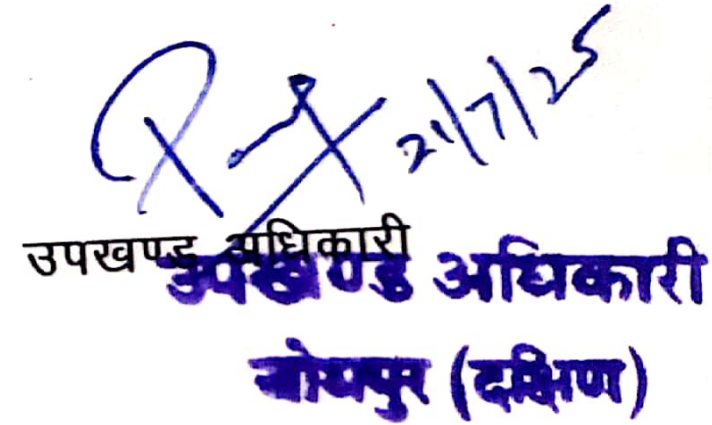 21/7/25
उपखण्ड अधिकारी
उपखण्ड अधिकारी
जोधपुर (दक्षिण)